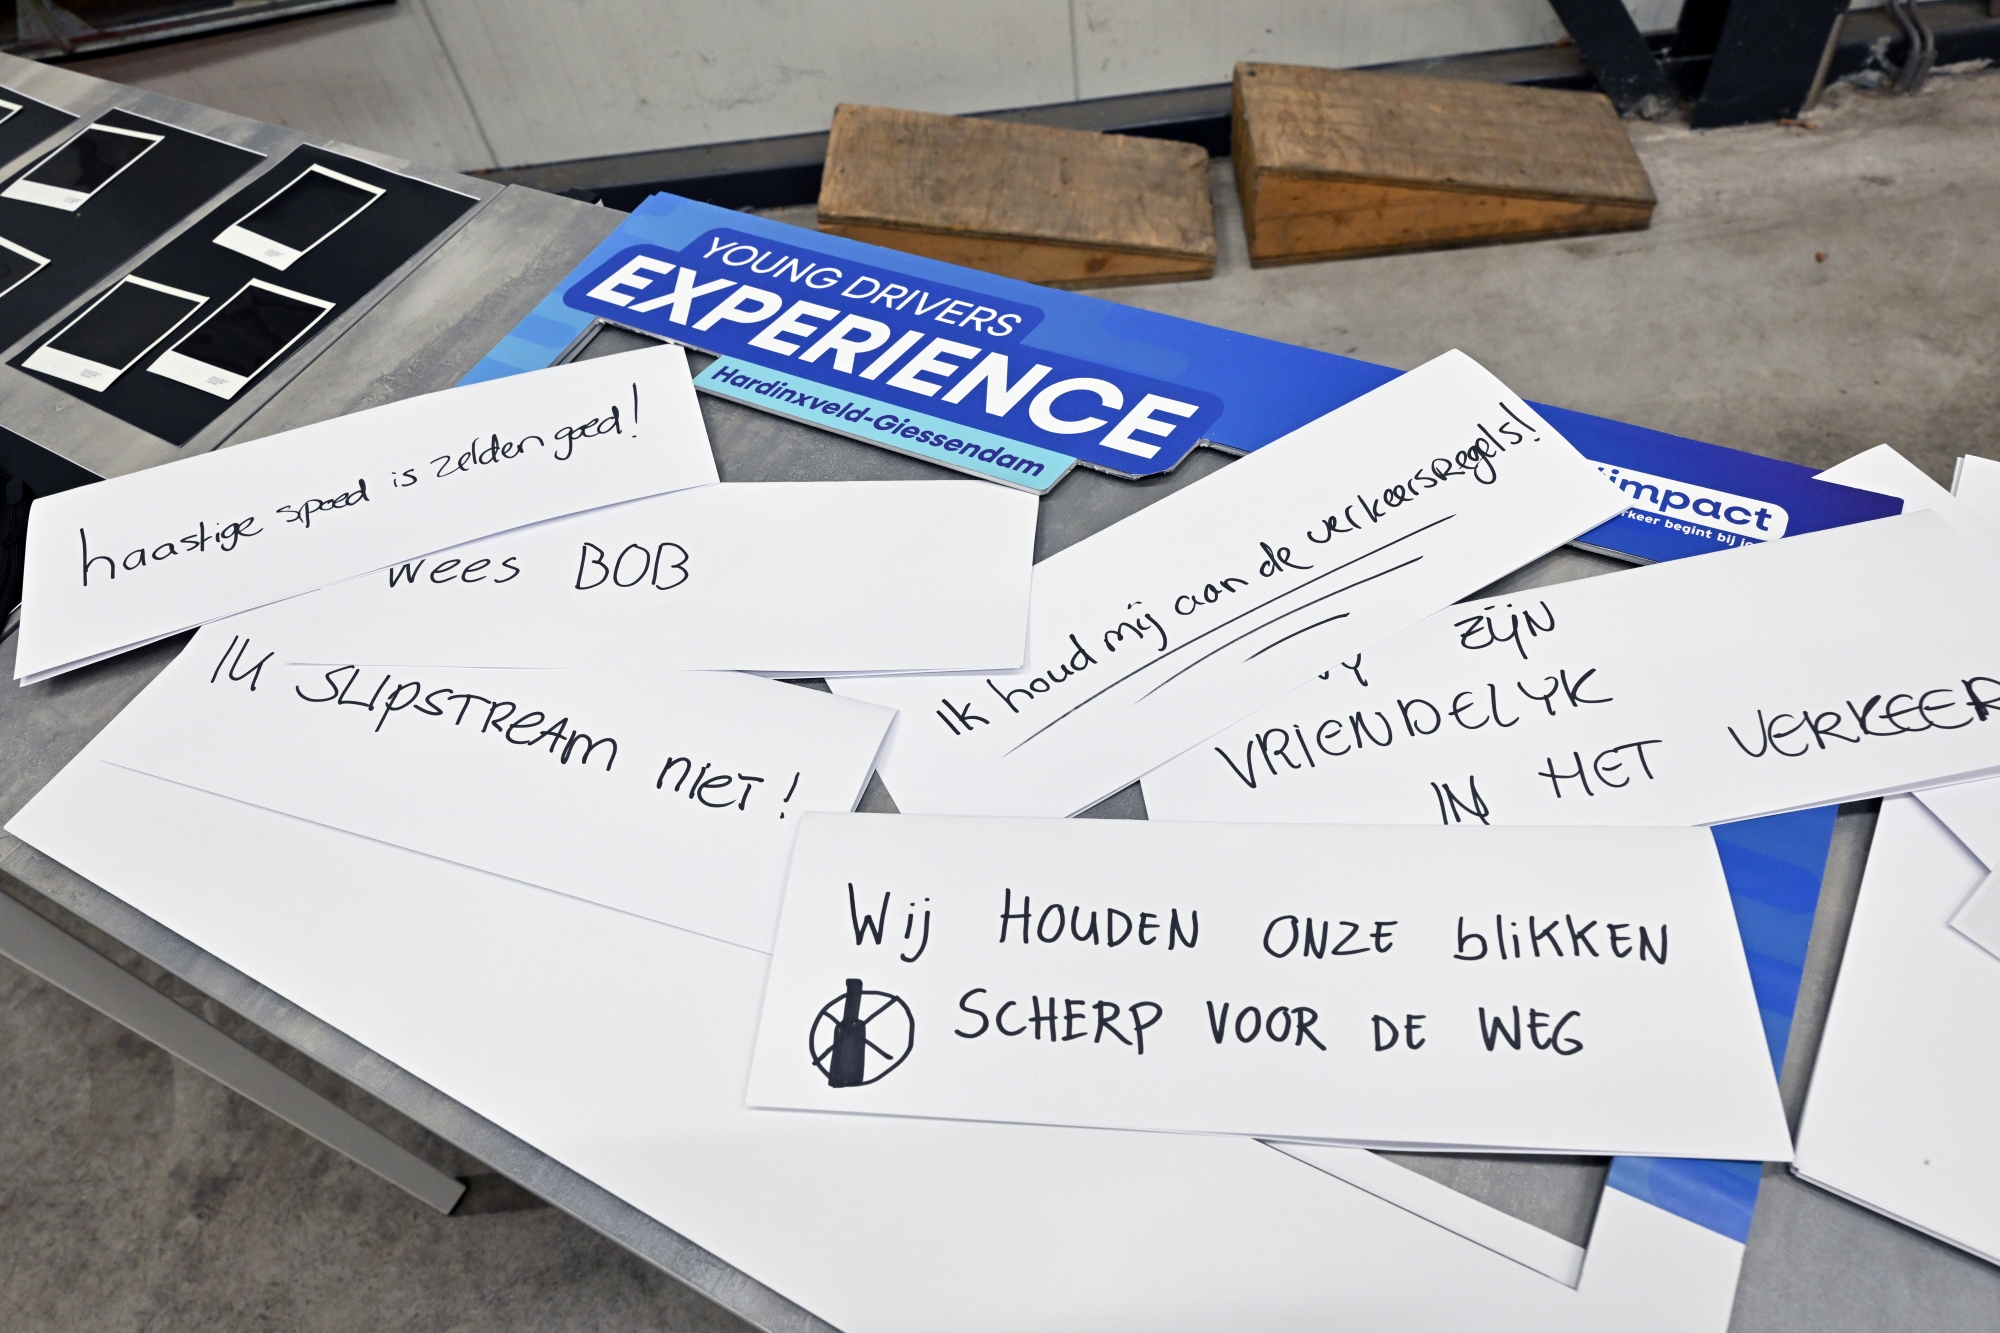 YOUNG DRIVERS
EXPERIENCE
Hardinxveld-Giessendam
impact
begint bij
haastige spoed is zelden goed!
wees BOB
IK SLIPSTREAM niet!
Ik houd mij aan de verkeersregels!
ZIJN
VRIENDELYK
IN HET VERKEER
Wij HOUDEN ONZE blikKEN
SCHERP VOOR DE WEG